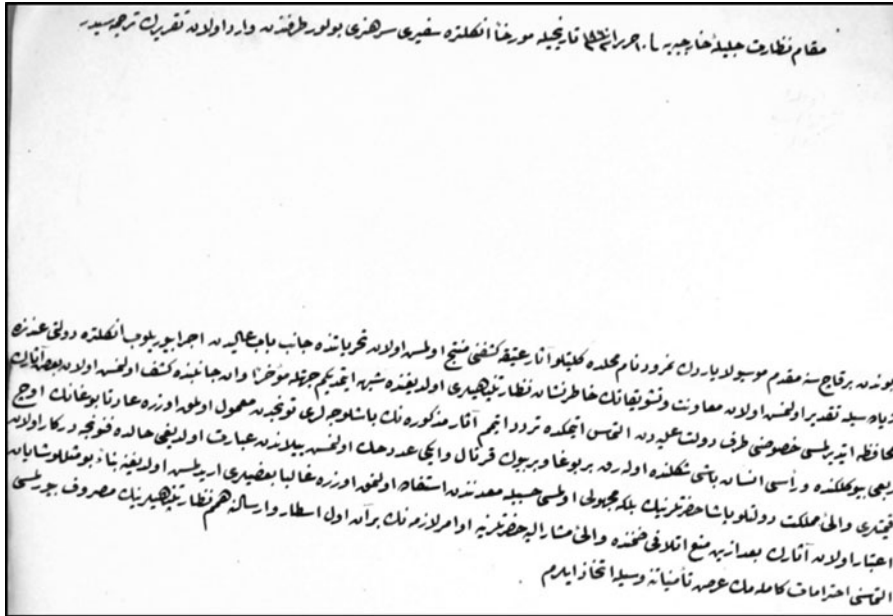 مقام نظارت جلیلهٔ خارجیه یه ١٠ حزیران تاریخیله مورخاً انکلتره سفیری سر هنری بولور طرفندن وارد اولان تقریرك ترجمه سیدر
بوندن برقاچ سنه مقدم موسیو لایاردك نمرود نام محلده کلیتلو آثار عتیقه کشفنی منتج اولمش اولان تحریاتنده جانب باب عالیدن اجرا بیوریلوب انکلتره دولتی عندنده
زیاده سیله تقدیر اولنمش اولان معاونت و تشویقاتك خاطرنشان نظارتپناهیلری اولدیغنده شبهه ایتمدیکم جهتله مؤخراً وان جانبنده کشف اولنمش اولان بعض آثارك
محافظه ایتدیرلمسی خصوصنی طرف دولت علیه دن التماس ایتمکده تردد ایتمم آثار مذکوره نك باشلوجه لری تونجدن معمول اولمق اوزره عادتا بوغانك اوچ
ربعی بیوکلکنده و رأسی انسان باشی شکلنده اوله رق بر بوغا و بریوك قرتال و ایکی عدد حك اولنمش بیلاندن عبارت اولدیغی حالده فنونجه درکار اولان
قیمتلری والئ مملکت دولتلو پاشا حضرتلرینك بلکه مجهولی اولمسی حسبیله معدنندن استفاده اولنمق اوزره غالبا بعضیلری اریدلمش اولدیغنه بناءً بومثللو شایان
اعتبار اولان آثارك بعد ازین منع اتلافی ضمننده والئ مشار الیه حضرتلرینه اوامر لازمه نك بر آن اول اسطار و ارسالنه همم نظارتپناهیلرینك مصروف بیورلمسی
التماسنی احترامات کامله مك عرض تأمیناتنه وسیله اتخاذ ایلرم